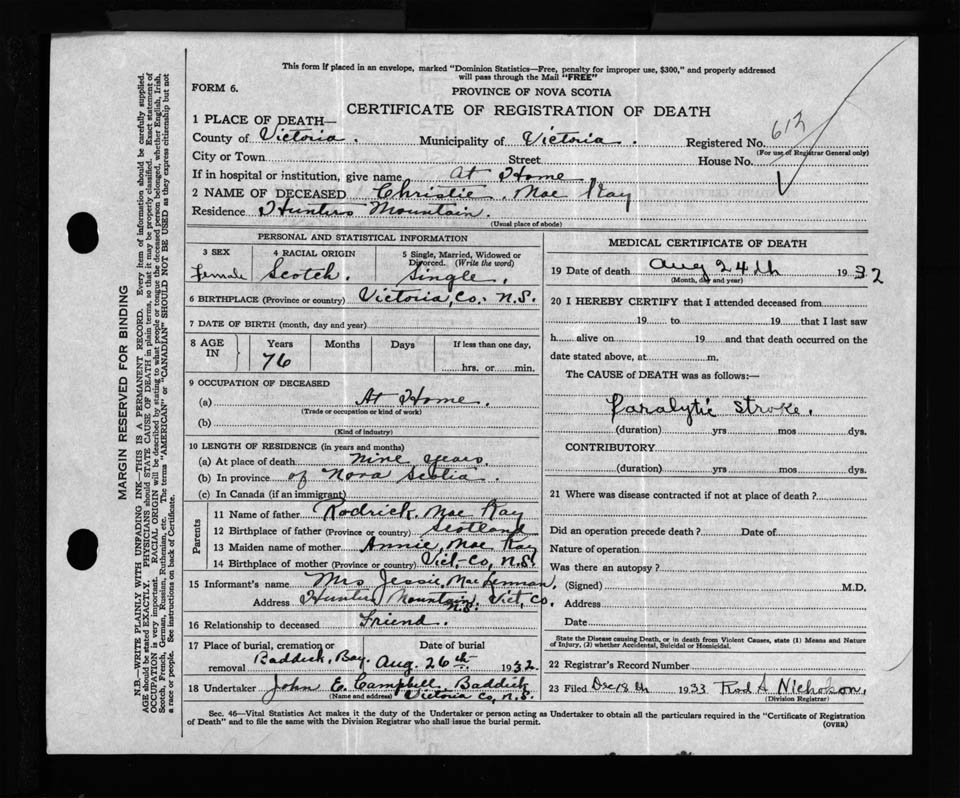 This form if placed in an envelope, marked "Dominion Statistics—Free, penalty for improper use, $300," and properly addressed
will pass through the Mail "FREE"
FORM 6.
PROVINCE OF NOVA SCOTIA
CERTIFICATE OF REGISTRATION OF DEATH
1 PLACE OF DEATH—
County of Victoria. Municipality of Victoria. Registered No. 612
(For use of Registrar General only)
City or Town Street House No.
If in hospital or institution, give name At Home
2 NAME OF DECEASED Christie Mac Kay
Residence Hunters Mountain.
(Usual place of abode)
PERSONAL AND STATISTICAL INFORMATION
3 SEX 4 RACIAL ORIGIN 5 Single, Married, Widowed or
Divorced. (Write the word)
Female Scotch. Single.
6 BIRTHPLACE (Province or country) Victoria, Co. N.S.
7 DATE OF BIRTH (month, day and year)
8 AGE IN Years Months Days If less than one day,
76 hrs. or min.
9 OCCUPATION OF DECEASED
(a) At Home.
(Trade or occupation or kind of work)
(b)
(Kind of industry)
10 LENGTH OF RESIDENCE (in years and months)
(a) At place of death nine years.
(b) In province of Nova Scotia
(c) In Canada (if an immigrant)
Parents
11 Name of father Rodrick Mac Kay
12 Birthplace of father (Province or country) Scotland
13 Maiden name of mother Annie, Mac Kay
14 Birthplace of mother (Province or country) Vict-Co, N.S.
15 Informant's name Mrs Jessie MacLennan,
Address Hunters Mountain Vict, Co.
N.S.
16 Relationship to deceased Friend.
17 Place of burial, cremation or Date of burial
removal Baddeck, Bay. Aug. 26th 1932
18 Undertaker John E. Campbell Baddeck
(Name and address) Victoria Co, N.S.
MEDICAL CERTIFICATE OF DEATH
19 Date of death Aug 24th 1932
(Month, day and year)
20 I HEREBY CERTIFY that I attended deceased from
19 to 19 that I last saw
h alive on 19 and that death occurred on the
date stated above, at m.
The CAUSE of DEATH was as follows:—
Paralytic stroke.
(duration) yrs mos dys.
CONTRIBUTORY
(duration) yrs mos dys.
21 Where was disease contracted if not at place of death?
Did an operation precede death? Date of
Nature of operation
Was there an autopsy?
(Signed) M.D.
Address
Date
State the Disease causing Death, or in death from Violent Causes, state (1) Means and Nature
of Injury, (2) whether Accidental, Suicidal or Homicidal.
22 Registrar's Record Number
23 Filed Dec 18th 1933 Rod A Nicholson,
(Division Registrar)
Sec. 46—Vital Statistics Act makes it the duty of the Undertaker or person acting as Undertaker to obtain all the particulars required in the "Certificate of Registration
of Death" and to file the same with the Division Registrar who shall issue the burial permit.
(OVER)
MARGIN RESERVED FOR BINDING
N.B.—WRITE PLAINLY WITH UNFADING INK—THIS IS A PERMANENT RECORD. Every item of information should be carefully supplied.
AGE should be stated EXACTLY. PHYSICIANS should STATE CAUSE OF DEATH in plain terms, so that it may be properly classified. Exact statement of
OCCUPATION is very important. RACIAL ORIGIN will be described by stating to what people or tongue the deceased person belonged, whether English, Irish,
Scotch, French, German, Russian, Ruthenian, etc. The terms "AMERICAN" or "CANADIAN" SHOULD NOT BE USED as they express citizenship but not
a race or people. See instructions on back of Certificate.